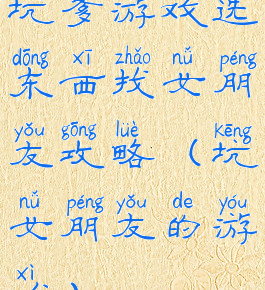 坑爹游戏选
dōng xī zhǎo nǚ péng
东西找女朋
yǒu gōng lüè kēng
友攻略(坑
nǚ péng yǒu de yóu
女朋友的游
xì